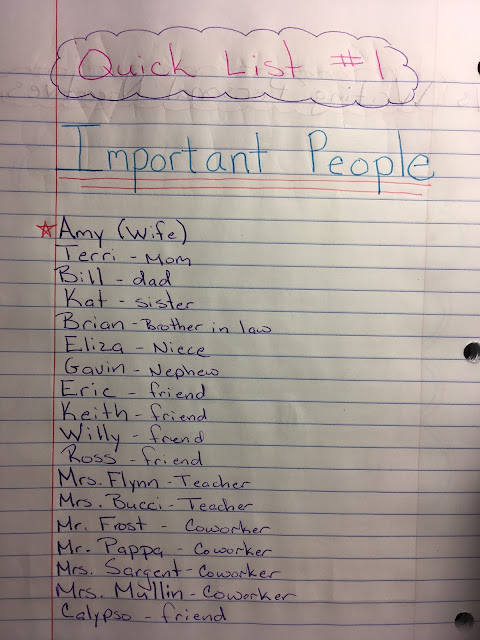 Quick List #1
Important People
Amy (wife)
Terri - Mom
Bill - dad
Kat - sister
Brian - Brother in law
Eliza - Niece
Gavin - Nephew
Eric - friend
Keith - friend
Willy - friend
Ross - friend
Mrs. Flynn - Teacher
Mrs. Bucci - Teacher
Mr. Frost - Coworker
Mr. Pappa - Coworker
Mrs. Sargent - Coworker
Mrs. Mullin - Coworker
Calypso - friend